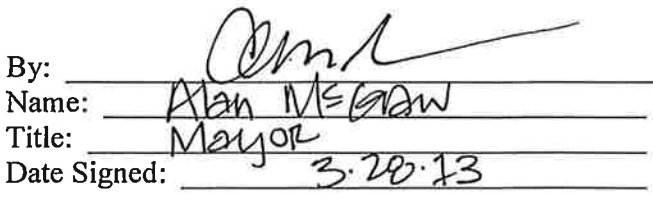 By:
Name: Alan McGraw
Title: Mayor
Date Signed: 3.28.13